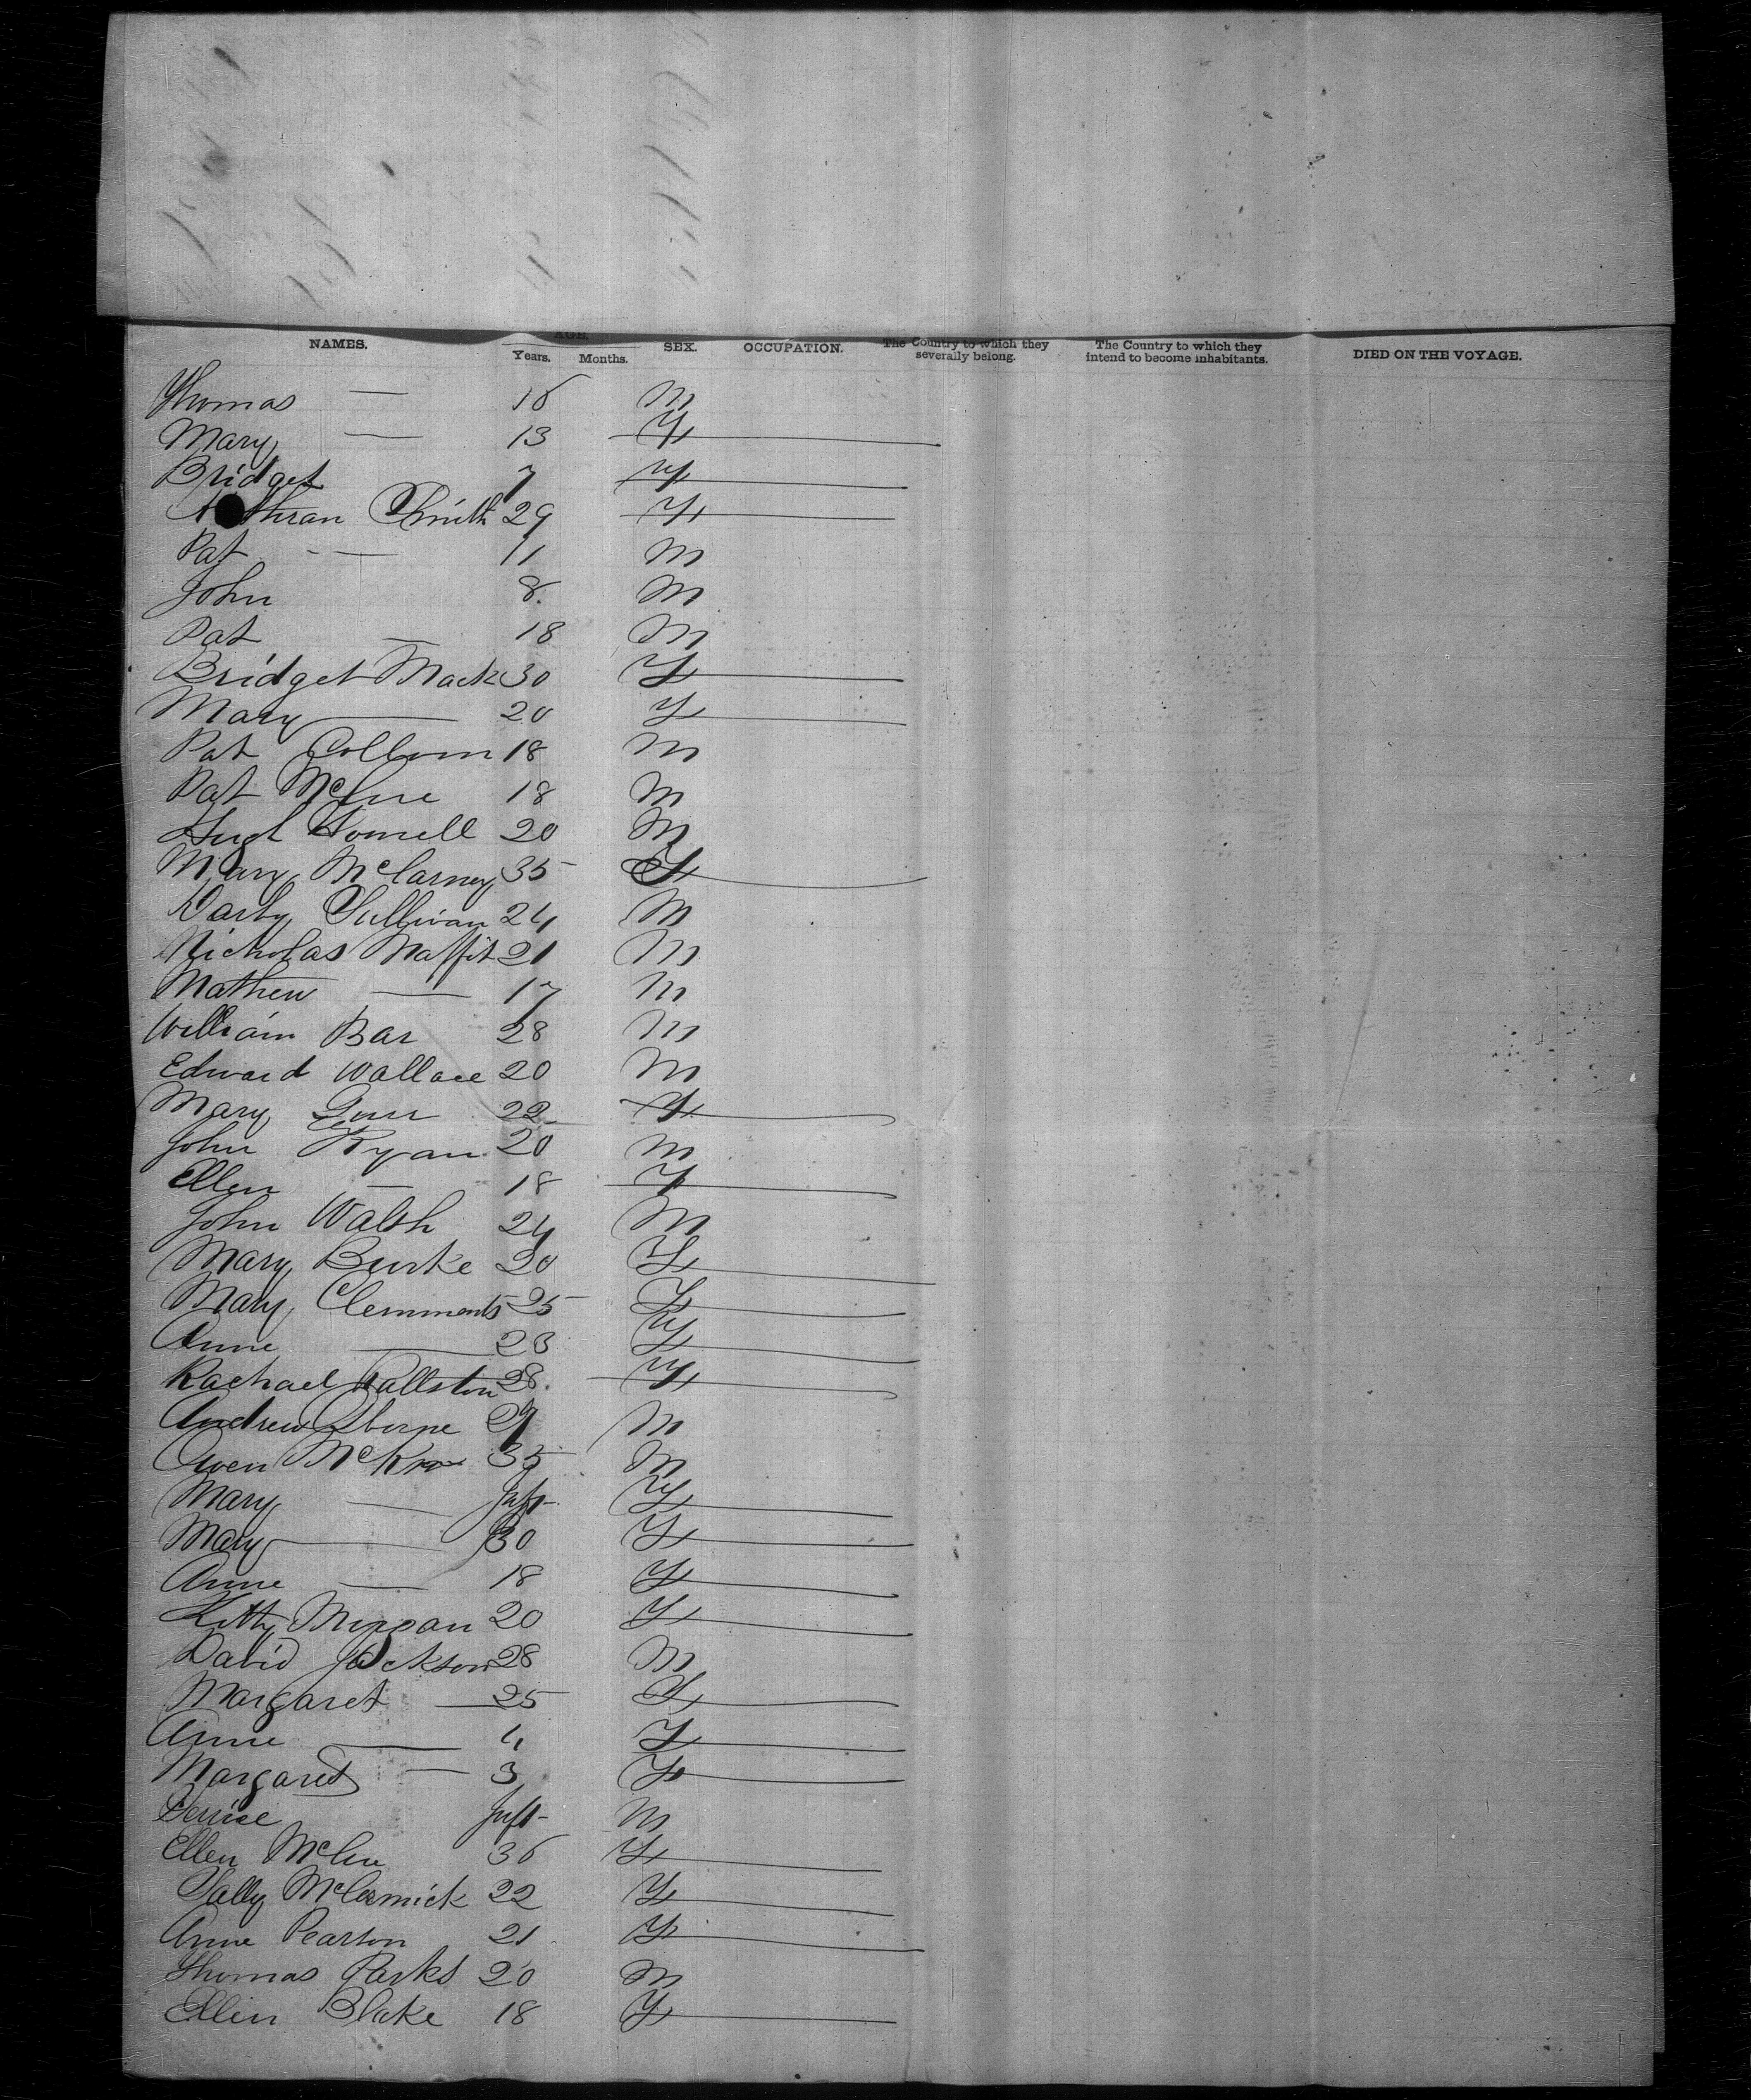 NAMES. AGE. Years. Months. SEX. OCCUPATION. The Country to which they severally belong. The Country to which they intend to become inhabitants. DIED ON THE VOYAGE.
Thomas — 16 M
Mary — 13 F
Bridget 7 F
Smith 29 F
Pat — 11 M
John 8 M
Pat — 18 M
Bridget Mack 30 F
Mary — 20 F
Pat 18 M
Pat 18 M
Hugh 20 M
Mary McCarney 35 F
Darby Sullivan 24 M
Nicholas Maffit 21 M
Mathew — 17 M
William Bar 28 M
Edward Wallace 20 M
Mary 22 F
John Ryan 20 M
Ellen — 18 F
John Walsh 24 M
Mary Burke 20 F
Mary Clemments 25 F
Anne — 23 F
Rachael 28 F
Andrew M
Owen 35 M
Mary — Inft F
Mary — 30 F
Anne — 18 F
Kitty 20 F
David Jackson 28 M
Margaret — 25 F
Anne — 4 F
Margaret — 3 F
Inft M
Ellen 36 F
Sally McCormick 22 F
Anne Pearson 21 F
Thomas Parks 20 M
Ellen Blake 18 F